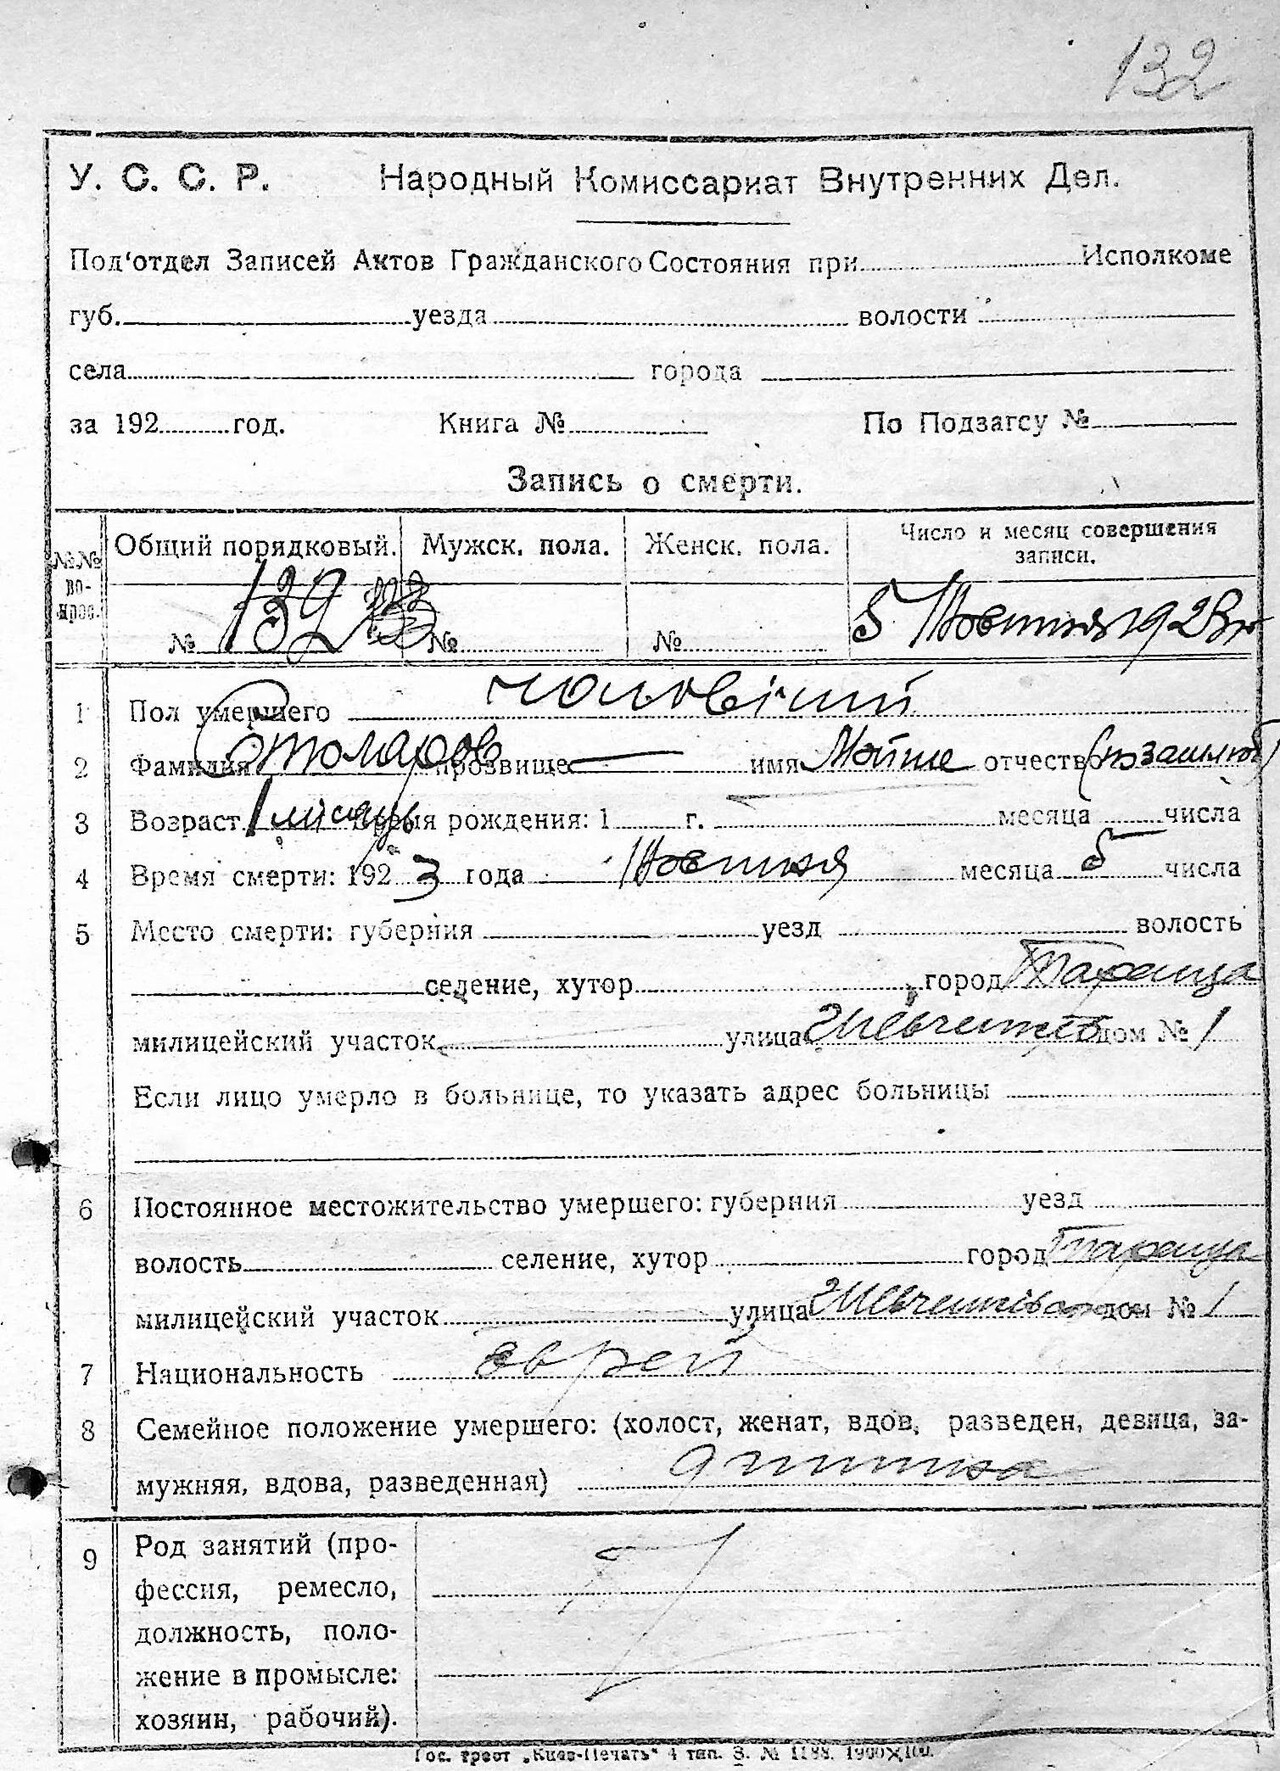 132
У. С. С. Р. Народный Комиссариат Внутренних Дел.
Под'отдел Записей Актов Гражданского Состояния при Исполкоме
губ. уезда волости
села города
за 192 год. Книга № По Подзагсу №
Запись о смерти.
№№ во-прос. Общий порядковый. Мужск. пола. Женск. пола. Число и месяц совершения записи.
№ 132 № № 5 Жовтня 1923 г
1 Пол умершего чоловічий
2 Фамилия Столяров прозвище имя Мойше отчество
3 Возраст 1 місяць Время рождения: 1 г. месяца числа
4 Время смерти: 1923 года Жовтня месяца 5 числа
5 Место смерти: губерния уезд волость
селение, хутор город Тараща
милицейский участок улица Шевченків дом № 1
Если лицо умерло в больнице, то указать адрес больницы
6 Постоянное местожительство умершего: губерния уезд
волость селение, хутор город Тараща
милицейский участок улица Шевченківська дом № 1
7 Национальность еврей
8 Семейное положение умершего: (холост, женат, вдов, разведен, девица, за-
мужняя, вдова, разведенная) дитина
9 Род занятий (про-
фессия, ремесло,
должность, поло-
жение в промысле:
хозяин, рабочий).
Гос. трест „Киев-Печать“ 4 тип. З. № 1188. 1900×100.